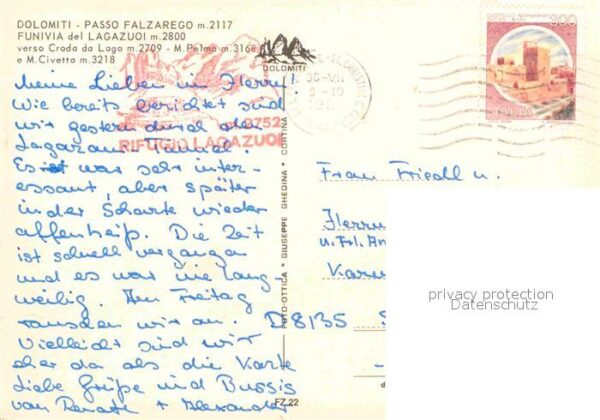 DOLOMITI - PASSO FALZAREGO m.2117
FUNIVIA del LAGAZUOI m.2800
verso Croda da Lago m.2709 - M.Pelmo m.3168
e M.Civetta m.3218
DOLOMITI
2752
RIFUGIO LAGAZUOI
300
ITALIA
Meine Lieben in Herrg!
Wie bereits berichtet sind
wir gestern durch den
Lagazuoi-Tunnel.
Es war sehr inter-
essant, aber später
in der Scharte wieder
affenheiß. Die Zeit
ist schnell vergangen
und es war nie lang-
weilig. Am Freitag
rauschen wir an.
Vielleicht sind wir
eher da als die Karte
Liebe Grüße und Bussis
van Renate + Alexander
FOTO-OTTICA • GIUSEPPE GHEDINA • CORTINA
FZ 22
Frau Friedl u.
u. Frl. An
D 8135
privacy protection
Datenschutz